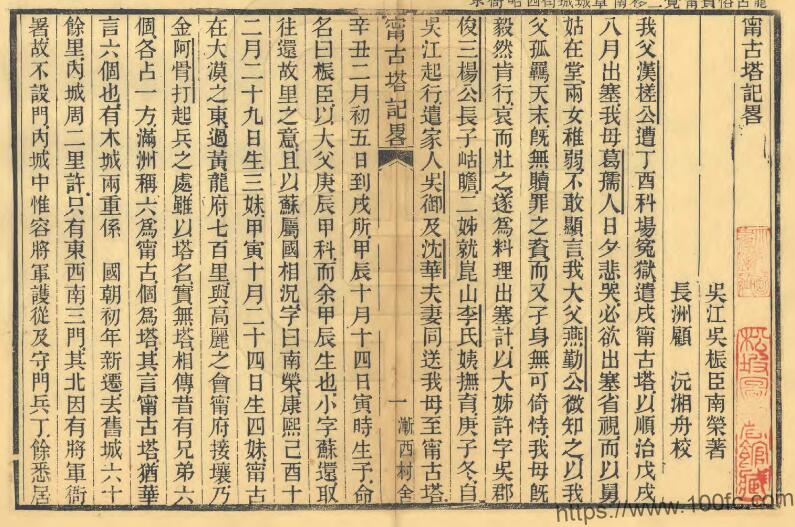 甯古塔記畧
吳江吳桭臣南榮著
長洲顧　沅湘舟校
我父漢槎公遭丁酉科場冤獄遣戍甯古塔以順治戊戌
八月出塞我母葛孺人日夕悲哭必欲出塞省視而以舅
姑在堂兩女稚弱不敢顯言我大父燕勤公微知之以我
父孤羈天末旣無贖罪之資而又子身無可倚恃我母旣
毅然肯行哀而壯之遂爲料理出塞計以大姊許字吳郡
俊三楊公長子岵瞻二姊就崑山李氏姨撫育庚子冬自
吳江起行遣家人吳御及沈華夫妻同送我母至甯古塔
甯古塔記畧
一
漸西村舍
辛丑二月初五日到戍所甲辰十月十四日寅時生予命
名曰桭臣以大父庚辰甲科而余甲辰生也小字蘇還取
往還故里之意且以蘇屬國相況字曰南榮康熙己酉十
二月二十九日生三妹甲寅十月二十四日生四妹甯古
在大漠之東過黃龍府七百里與高麗之會甯府接壤乃
金阿骨打起兵之處雖以塔名實無塔相傳昔有兄弟六
個各占一方滿洲稱六爲甯古個爲塔其言甯古塔猶華
言六個也有木城兩重係　國朝初年新遷去舊城六十
餘里內城周二里許只有東西南三門其北因有將軍衙
署故不設門內城中惟容將軍護從及守門兵丁餘悉居
https://www.100fc.com